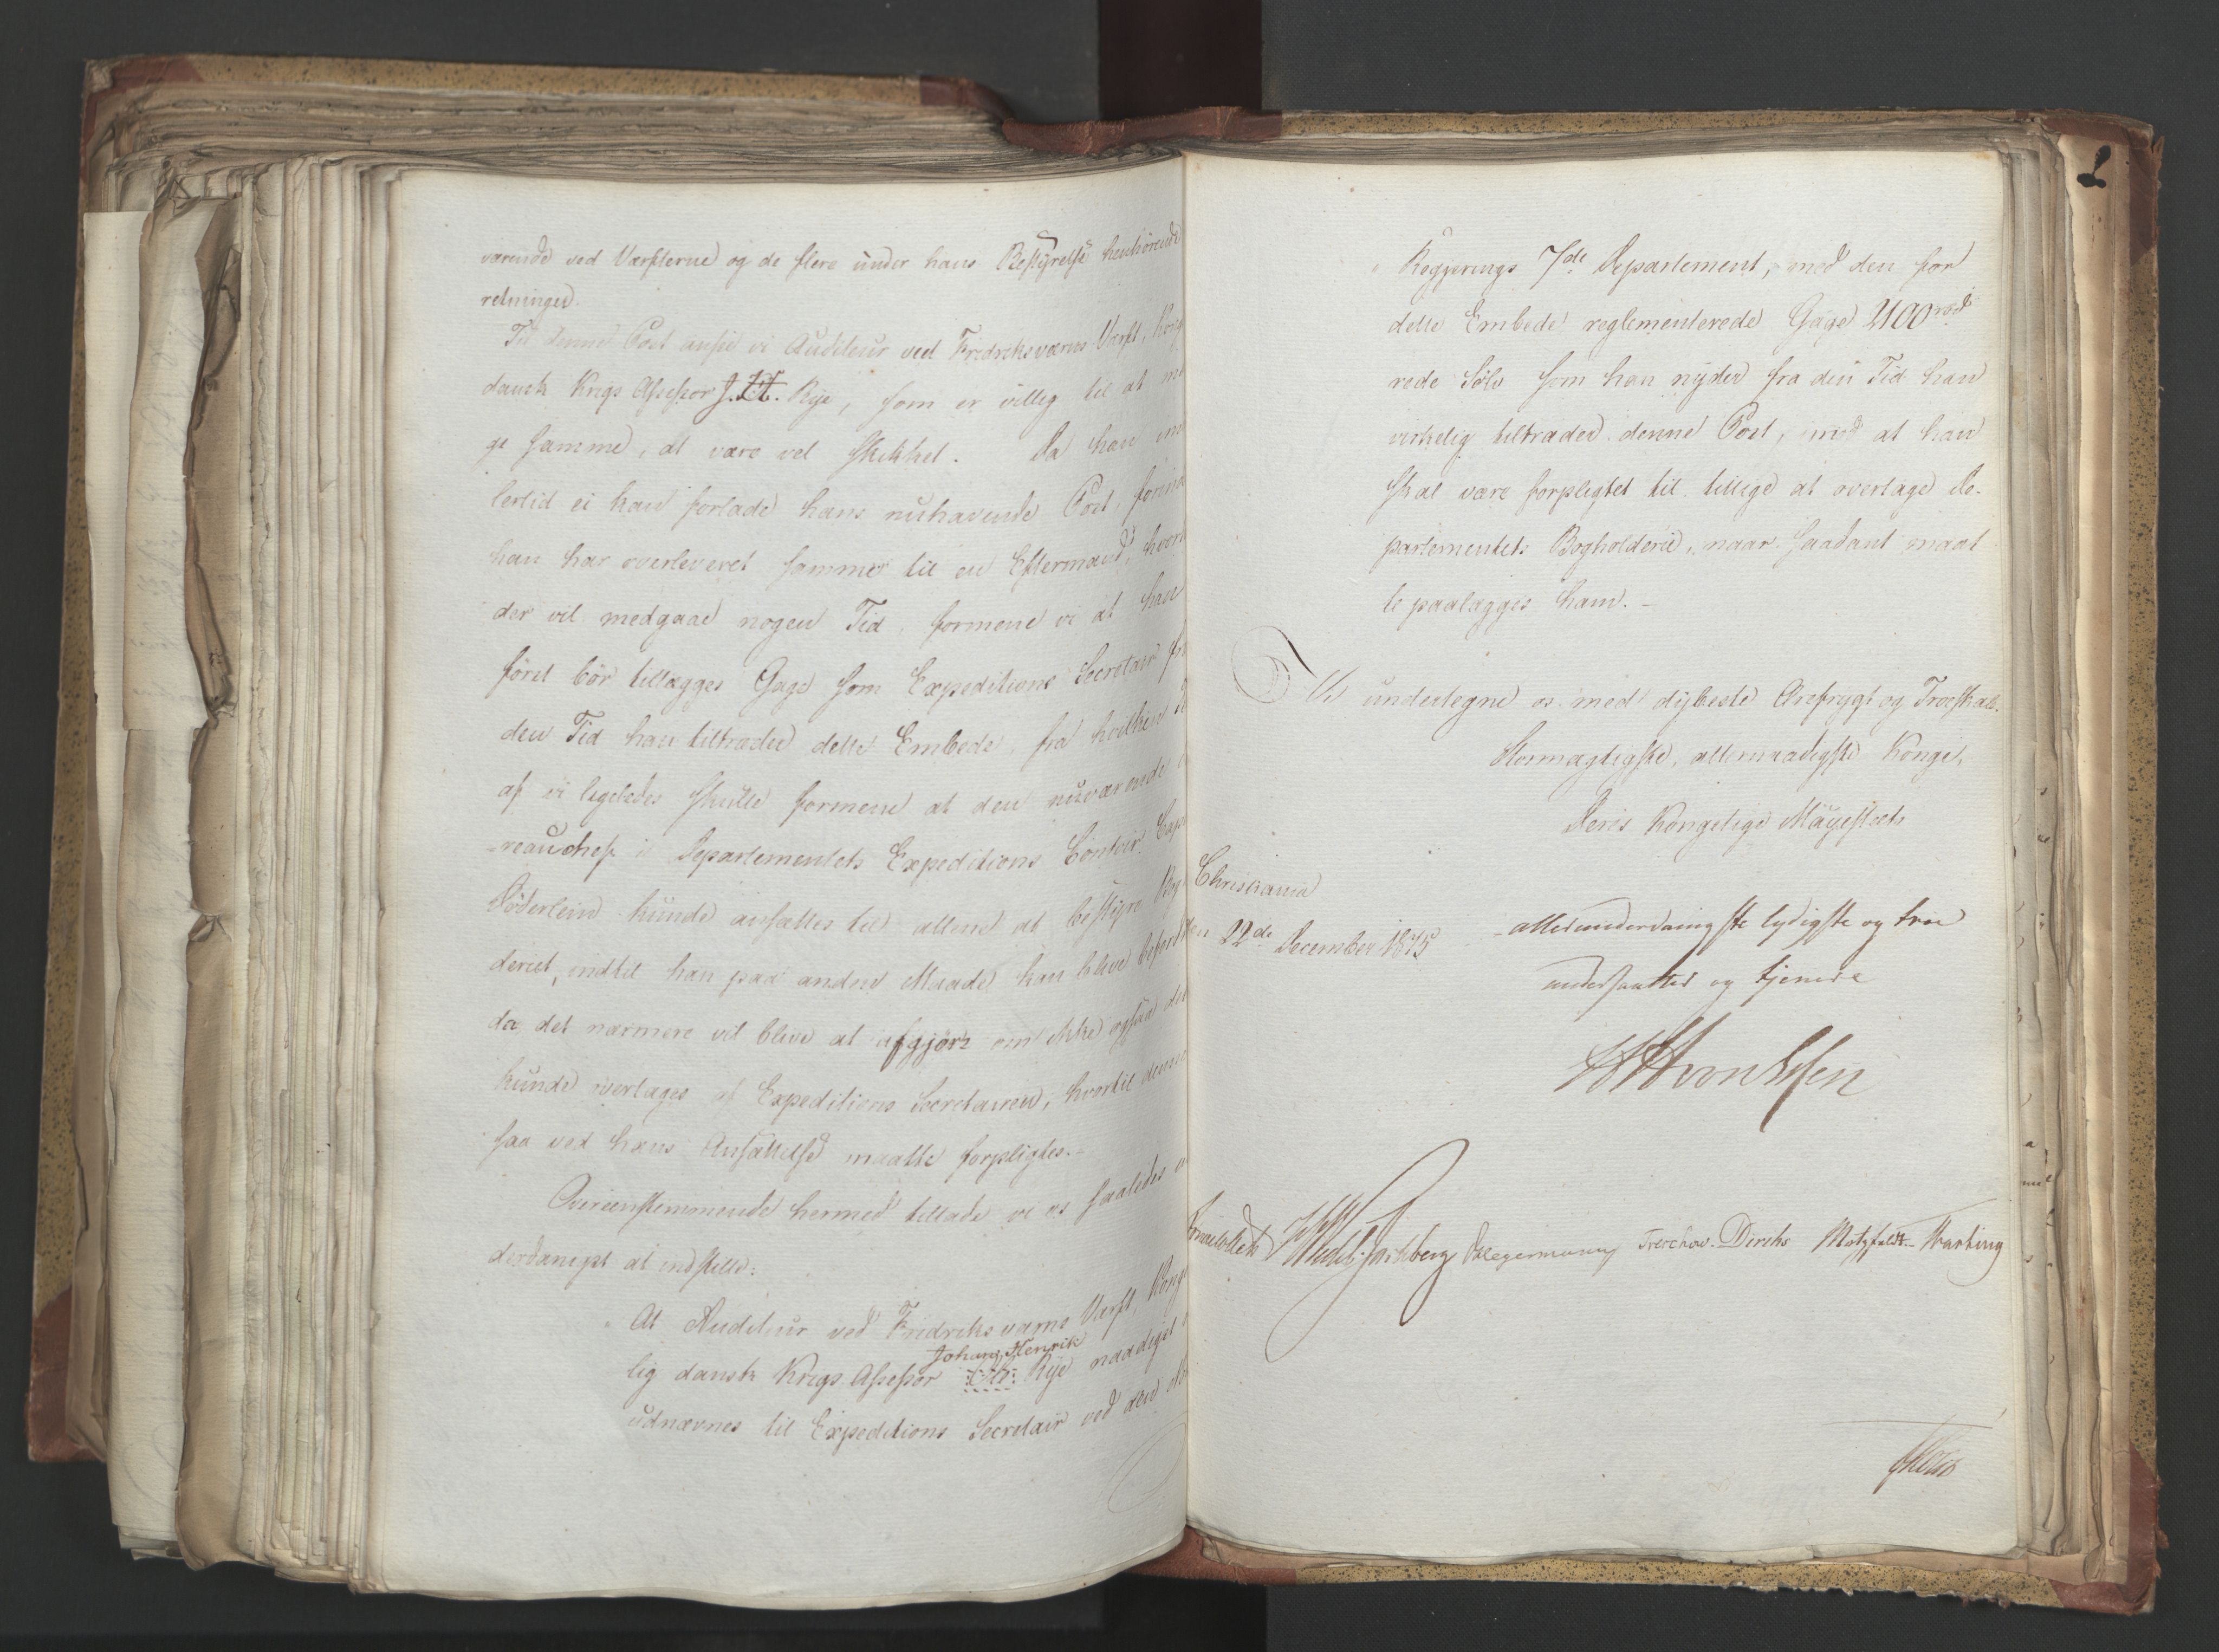 værende ved Værfterne og de flere under hans Bestyrelse henhörende
retninger.
Til denne Post ansee vi Auditeur ved Fredriksværns Værft, Kong
dansk Krigs Assessor J. H. Rye, som er villig til at mo
ge samme, at være vel skikket. Da han im
lertid ei kan forlade hans nuhavende Post, forind
han har overleveret samme til en Eftermand, hvor
der vil medgaae nogen Tid, formene vi at han
först bör tillægges Gage som Expeditions Secretair fra
den Tid han tiltræder dette Embede, fra hvilken
af vi ligeledes skulle formene at den nuværende
-reauchef i Departementets Expeditions Contoir Cap
Söderlein kunde ansættes til allene at bestyre Bog
deriet, indtil han paa anden Maade kan blive beford
da det nærmere vil blive at afgjöre om ikke ogsaa det
kunde overtages af Expeditions Secretairen, hvortil denne
saa ved hans Ansættelse maatte forpligtes.-
Overeenstemmende hermed tillade vi os saaledes
derdanigst at indstille:
At Auditeur ved Fredriksværns Værft, Konge
Johan Henrik
lig dansk Krigs Assessor Rye naadigst
udnævnes til Expeditions Secretair ved den
2
Regjerings 7de Departement, med den for
dette Embede reglementerede Gage
rede Sölv som han nyder fra den Tid han
virkelig tiltræder denne Post, imod at han
skal være forpligtet til tillige at overtage De-
partementets Bogholderie, naar saadant maat
te paalægges ham. -
Vi undertegne os med dybeste Ærefrygt og Troeskab.
Stormægtigste, allernaadigste Konge,
Deres Kongelige Majestæts
Christiania
den 22de December 1815
allerunderdanigste lydigste og troe
undersaatter og tjenere
Fr: Wedel-Jarlsberg Hegermann Treschow. Diriks Motzfeldt